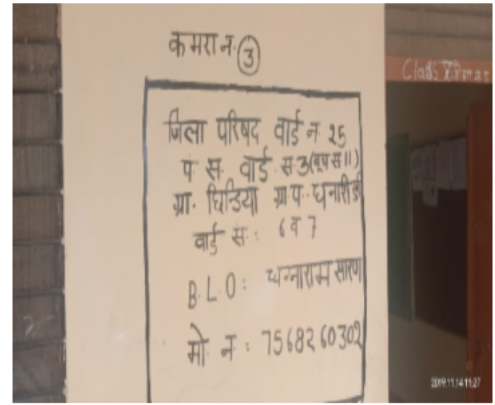 कमरा न. 3
Class
जिला परिषद वार्ड न 25
प स वार्ड स 3 (बूथ स 11)
ग्रा. घिन्डिया ग्रा प. धनारीकँ
वार्ड स : 6 व 7
B.L.O : धन्नाराम सारण
मो न : 7568260302
2019.11.14 11:27